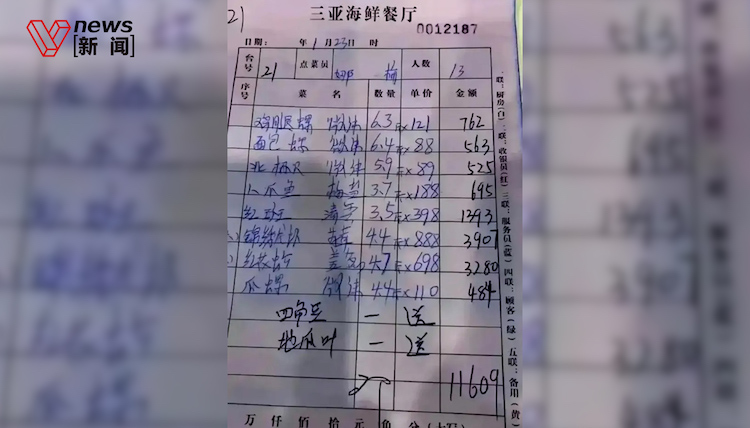 news
新闻
21
三亚海鲜餐厅
0012187
日期: 年 1 月 23 日 时
台号 21 点菜员 人数 13
序号 菜 名 数量 单价 金额
鸡腿螺 6.3 ×121 762
面包螺 6.4 ×88 563
5.9 ×89 525
八爪鱼 3.7 ×188 695
红斑 清蒸 3.5 ×398 1393
锦绣龙虾 4.4 ×888 3907
4.7 ×698 3280
瓜螺 4.4 ×110 484
四角豆 一 送
地瓜叶 一 送
11609
万 仟 佰 拾 元 角 分
一联:厨房(白)二联:收银员(红)三联:服务员(蓝)四联:顾客(绿)五联:备用(黄)